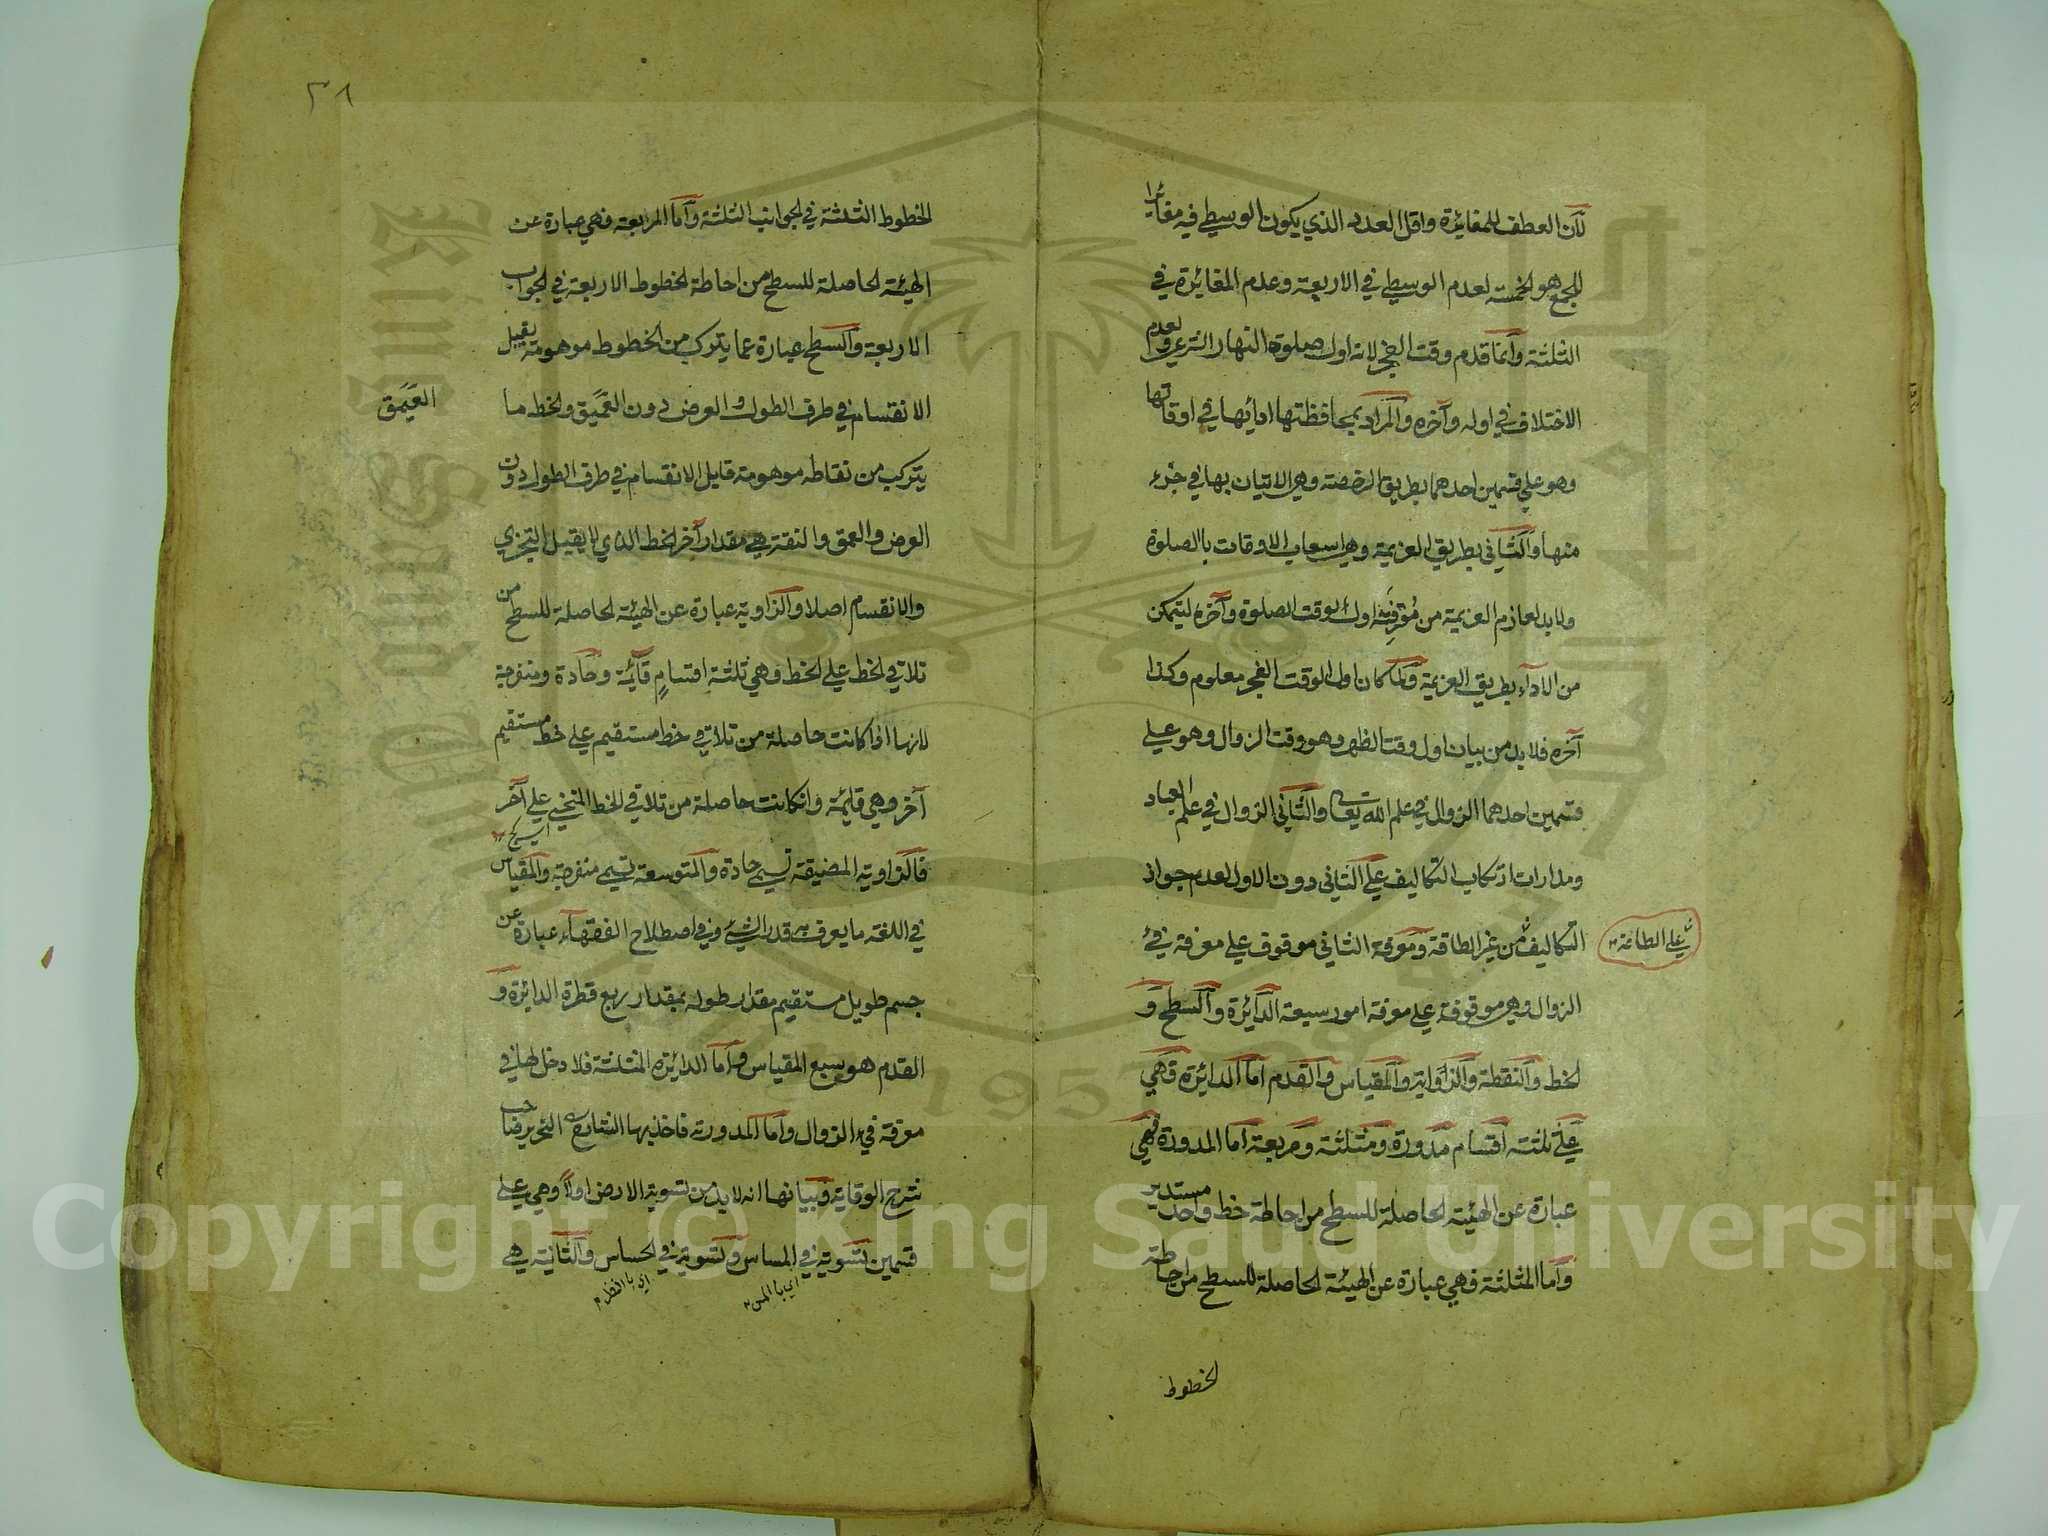 لان العطف للمغائرة واقل العدد الذي يكون الوسطي فيه مغائرا
للجمع هو الخمسة لعدم الوسطي في الاربعة وعدم المغائرة في
الثلثة وانما قدم وقت الفجر لانه اول صلوة النهار الشرعي ولعدم
الاختلاف في اوله وآخره والمراد بمحافظتها ادائها في اوقاتها
وهو علي قسمين احدهما بطريق الرخصة وهي الاتيان بها في جزء
منها والثاني بطريق العزيمة وهي استعاب الاوقات بالصلوة
ولابد لعازم العزيمة من معرفة اول الوقت الصلوة وآخره ليتمكن
من الاداء بطريق العزيمة ولما كان اول الوقت الفجر معلوم وكذا
آخره فلابد من بيان اول وقت الظهر وهو وقت الزوال وهو علي
قسمين احدهما الزوال في علم الله تعالى والثاني الزوال في علم العباد
ومدار ارتكاب التكاليف علي الثاني دون الاول لعدم جواز
التكاليف من غير الطاقة ومعرفة الثاني موقوف علي معرفة فيء
علي الطاعة
الزوال وهي موقوفة علي معرفة امور سبعة الدائرة والسطح و
الخط والنقطة والزاواية والمقياس والقدم اما الدائرة فهي
علي ثلثة اقسام مدورة ومثلثة ومربعة اما المدورة فهي
عبارة عن الهيئة الحاصلة للسطح من احاطة خط واحد مستدير
واما المثلثة فهي عبارة عن الهيئة الحاصلة للسطح من احاطة
الخطوط
٣٨
الخطوط الثلثة في الجوانب الثلثة واما المربعة فهي عبارة عن
الهيئة الحاصلة للسطح من احاطة الخطوط الاربعة في الجوانب
الاربعة والسطح عبارة عما يتركب من الخطوط موهومة يقبل
الانقسام في طرف الطول والعرض دون العميق والخط ما
العميق
يتركب من نقاطه موهومة قابل الانقسام في طرف الطول دون
العرض والعمق والنقة هي مقدار آخر الخط الذي لا يقبل التجزي
والانقسام اصلا والزاوية عبارة عن الهيئة الحاصلة للسطح من
تلاقي الخط علي الخط وهي ثلثة اقسام قائمة وحادة ومنفرجة
لانها اذا كانت حاصلة من تلاقي خط مستقيم علي خط مستقيم
آخر وهي قايمة وان كانت حاصلة من تلاقي الخط المنحني علي آخر
فالزاوية المضيقة تسمي حادة والمتوسعة تسمي منفرجة والمقياس
في اللغة ما يعرف به قدر الشيء وفي اصطلاح الفقهاء عبارة عن
جسم طويل مستقيم مقدار طوله بمقدار ربع قطرة الدائرة و
القدم هو سبع المقياس واما الدائرة المثلثة فلا دخل لها في
معرفة فيء الزوال واما المدورة فاخذ بها الشارح التحرير صاحب
شرح الوقاية وبيانها انه لابد من تسوية الارض اولا وهي علي
قسمين تسوية في المساس وتسوية في الحساس والثانية هي
اي بالمس
اي بالنظر
Copyright © King Saud University
King Saud University
1957